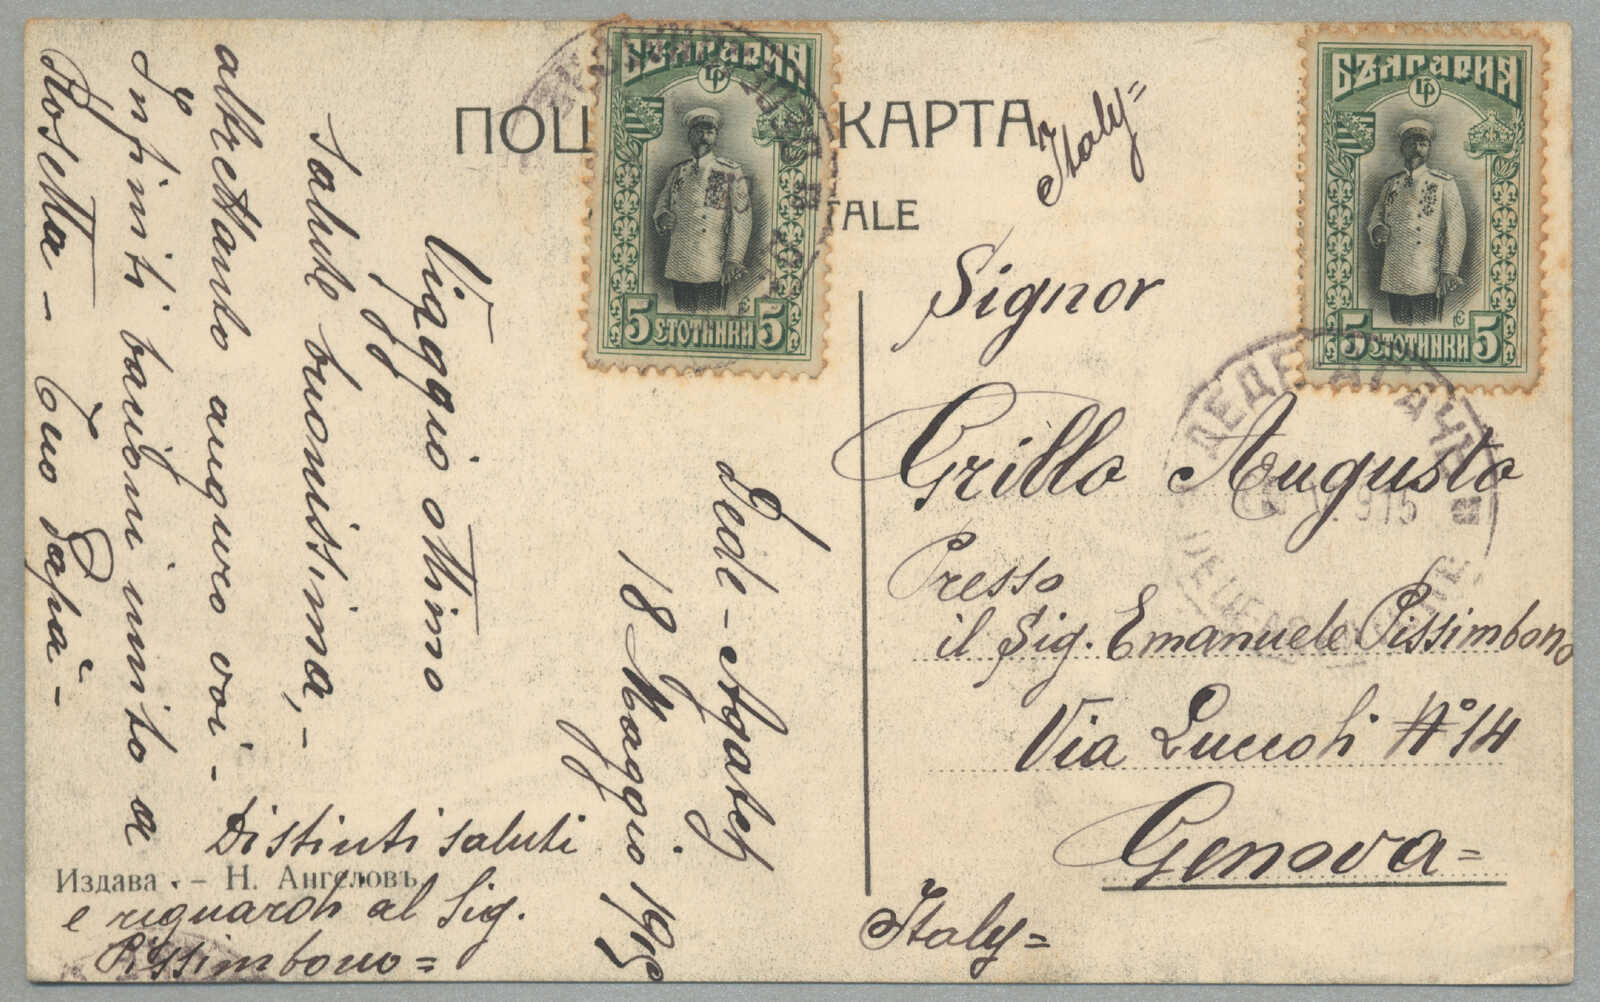 ПОЩ КАРТА
TALE
Italy=
БЪЛГАРИЯ
5 СТОТИНКИ 5
БЪЛГАРИЯ
5 СТОТИНКИ 5
ДЕДЕАГАЧЪ
Dede-Agatch
18 Maggio 1915
Viaggio ottimo
Salute buonissima,-
altrettanto auguro voi-
Infiniti bacioni unito a
Rosetta- tuo Papà-
Distinti saluti
e riguardi al Sig.
Pissimbono=
Издава - Н. Ангеловъ
Signor
Grillo Augusto
Presso
il Sig. Emanuele Pissimbono
Via Luccoli N° 14
Genova=
Italy=